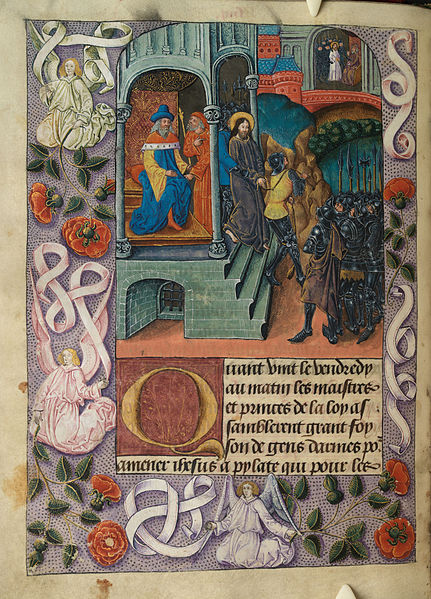 Quant vint le vendredy
au matin les maistres
et princes de la loy as
samblerent grant foy
son de gens darmes po^r
amener ihesus a pylate qui pour lee